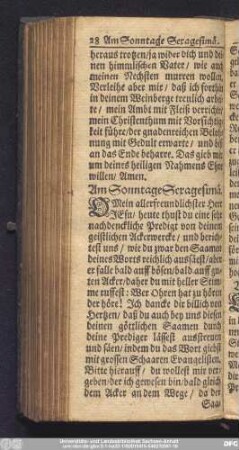 28 Am Sonntage Sexagesimä.
heraus trotzen/ja wider dich und dei-
nen himmlischen Vater/ wie auch
meinen Nechsten murren wollen.
Verleihe aber mir/ daß ich forthin
in deinem Weinberge treulich arbei-
te/ mein Ambt mit Fleiß verrichte/
mein Christenthum mit Vorsichtig-
keit führe/der gnadenreichen Beloh-
nung mit Gedult erwarte/ und biß
an das Ende beharre. Das gieb mir
um deines heiligen Nahmens Ehre
willen/ Amen.
Am Sonntage Sexagesimä.
O Mein allerfreundlichster Herr
JEsu/ heute thust du eine sehr
nachdenckliche Predigt von deinem
geistlichen Ackerwercke/ und berich-
test uns/ wie du zwar den Saamen
deines Worts reichlich aussäest/aber
er falle bald auff bösen/bald auff gu-
ten Acker/daher du mit heller Stim-
me ruffest: Wer Ohren hat zu hören
der höre! Ich dancke dir billich von
Hertzen/ daß du auch bey uns diesen
deinen göttlichen Saamen durch
deine Prediger lässest ausstreuen
und säen/ indem du das Wort giebst
mit grossen Schaaren Evangelisten.
Bitte hierauff/ du wollest mir ver-
geben/der ich gewesen bin/bald gleich
dem Acker an dem Wege/ da der
Saa-